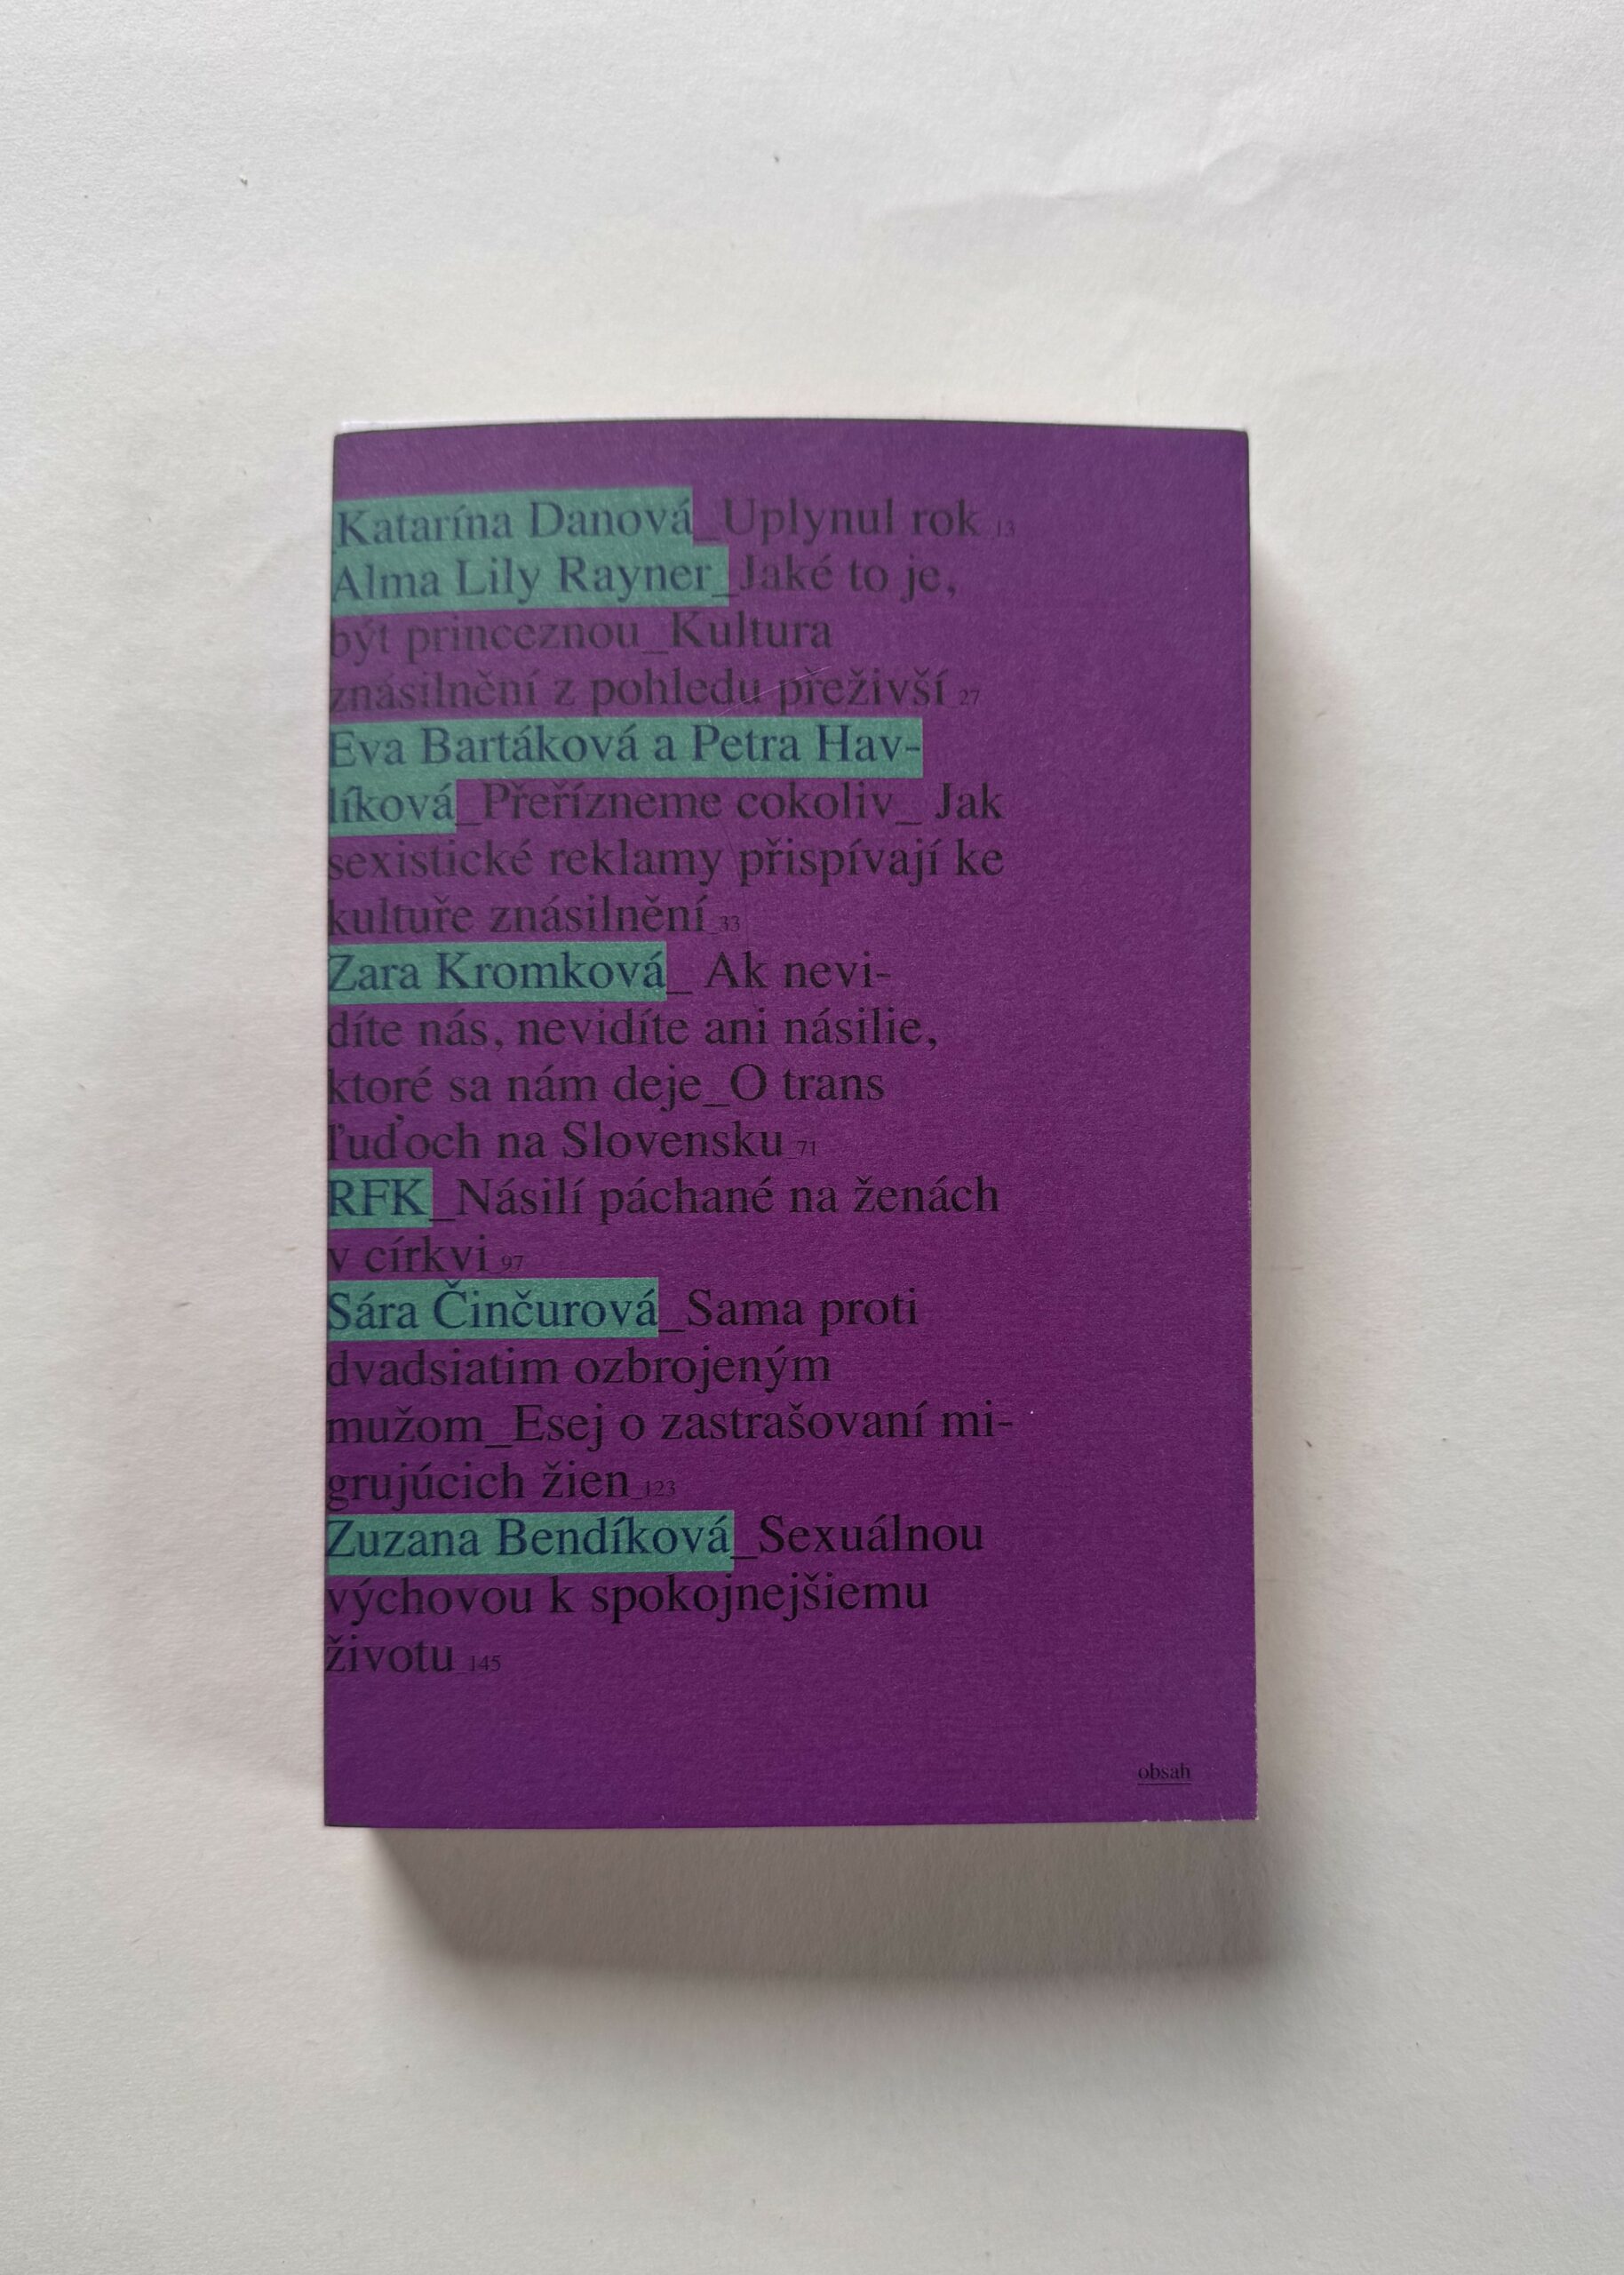 Katarína Danová_Uplynul rok 13
Alma Lily Rayner_Jaké to je,
být princeznou_Kultura
znásilnění z pohledu přeživší 27
Eva Bartáková a Petra Hav-
líková_Přeřízneme cokoliv_ Jak
sexistické reklamy přispívají ke
kultuře znásilnění 33
Zara Kromková_ Ak nevi-
díte nás, nevidíte ani násilie,
ktoré sa nám deje_O trans
ľuďoch na Slovensku 71
RFK_Násilí páchané na ženách
v církvi 97
Sára Činčurová_Sama proti
dvadsiatim ozbrojeným
mužom_Esej o zastrašovaní mi-
grujúcich žien 123
Zuzana Bendíková_Sexuálnou
výchovou k spokojnejšiemu
životu 145
obsah